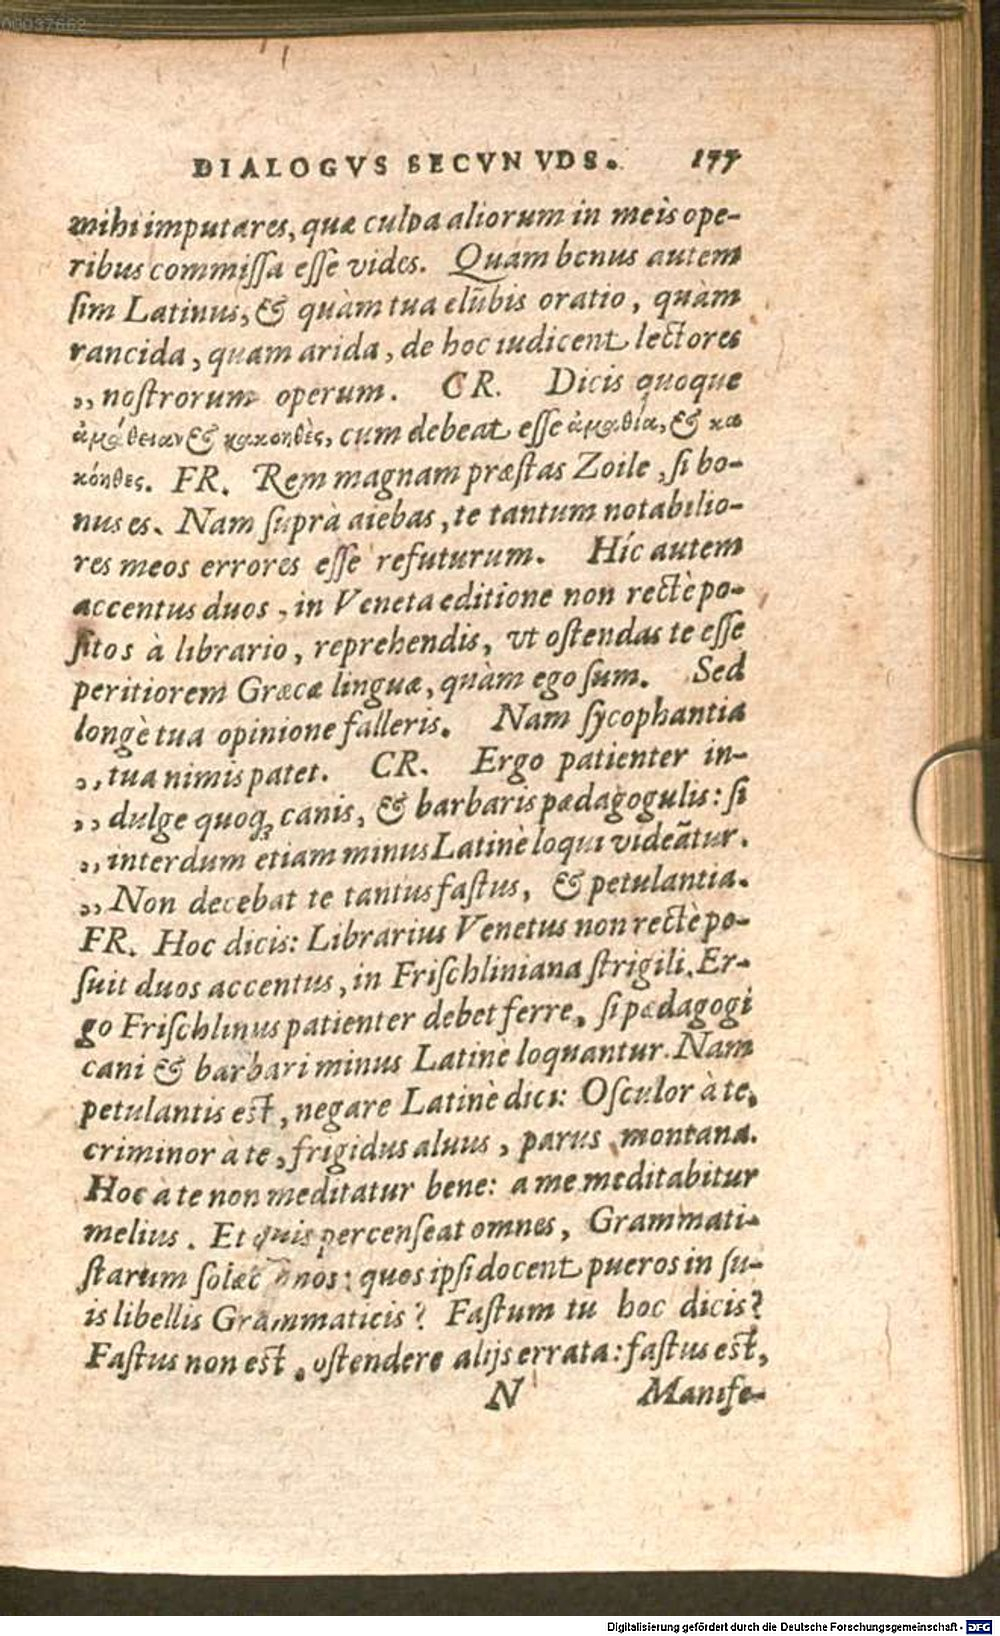 00037662
DIALOGVS SECVN VDS. 177
mihi imputares, quæ culpa aliorum in meis ope-
ribus commissa esse vides. Quàm bonus autem
sim Latinus, & quàm tua elũbis oratio, quàm
rancida, quam arida, de hoc iudicent lectores
,, nostrorum operum. CR. Dicis quoque
ἀμάθειαν & κακοηθὲς, cum debeat esse ἀμαθία, & κα
κόηθες. FR. Rem magnam præstas Zoile, si bo-
nus es. Nam suprà aiebas, te tantum notabilio-
res meos errores esse refuturum. Híc autem
accentus duos, in Veneta editione non rectè po-
sitos à librario, reprehendis, vt ostendas te esse
peritiorem Græcæ linguæ, quàm ego sum. Sed
longè tua opinione falleris. Nam sycophantia
,, tua nimis patet. CR. Ergo patienter in-
,, dulge quoqꝫ canis, & barbaris pædagogulis: si
,, interdum etiam minus Latinè loqui videãtur.
,, Non decebat te tantus fastus, & petulantia.
FR. Hoc dicis: Librarius Venetus non rectè po-
suit duos accentus, in Frischliniana strigili. Er-
go Frischlinus patienter debet ferre, si pædagogi
cani & barbari minus Latinè loquantur. Nam
petulantis est, negare Latinè dici: Osculor à te,
criminor à te, frigidus aluus, parus montana.
Hoc à te non meditatur bene: a me meditabitur
melius. Et quis percenseat omnes, Grammati-
starum solæc nos: quos ipsi docent pueros in su-
is libellis Grammaticis? Fastum tu hoc dicis?
Fastus non est, ostendere alijs errata: fastus est,
N Manife-
Digitalisierung gefördert durch die Deutsche Forschungsgemeinschaft - DFG